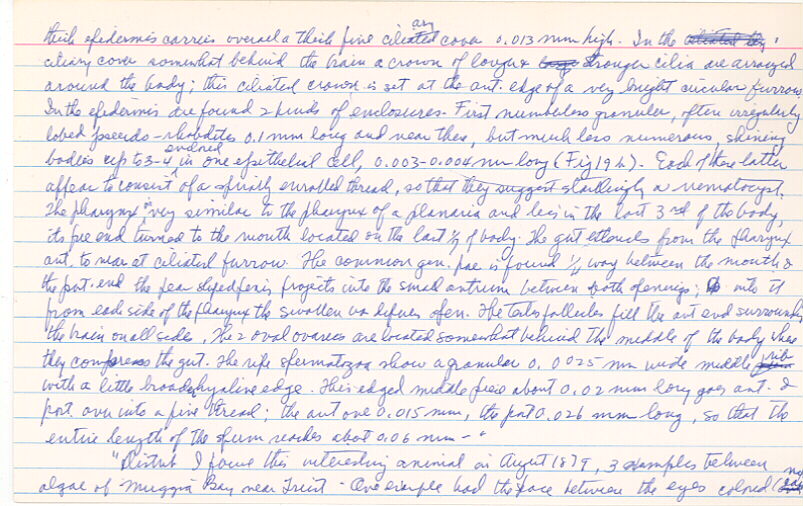 thick epidermis carries overal a thick fine ciliary cover 0.013 mm high. In the
ciliary cover somewhat behind the brain a crown of longer stronger cilia are arranged
around the body; this ciliated crown is set at the ant. edge of a very bright circular furrow
In the epidermis are found 2 kinds of enclosures. First numberless granular, often irregularly
lobed pseudo-rhabdites 0.1 mm long and near these, but much less numerous, shining
bodies up to 3-4 enclosed in one epithelial cell, 0.003-0.004 mm long (Fig 19 h). Each of these latter
appear to consist of a spirally enrolled thread, so that they suggest startlingly a nematocyst.
The pharynx is very similar to the pharynx of a planaria and lies in the last 3rd of the body,
its free end turned to the mouth located on the last ⅓ of body. The gut extends from the pharynx
ant. to near at ciliated furrow. The common gen. pore is found ½ way between the mouth &
the post. end the pear shaped penis projects into the small antrum between both openings; into it
from each side of the pharynx the swollen vas deferens open. The testis follicles fill the ant end surrounding
the brain on all sides. The 2 oval ovaries are located somewhat behind the middle of the body where
they compress the gut. The ripe spermatozoa show a granular 0.0025 mm wide middle rib
with a little broader hyaline edge. This edged middle piece about 0.02 mm long goes ant. &
post. over into a fine thread; the ant one 0.015 mm, the post 0.026 mm long, so that the
entire length of the sperm reaches about 0.06 mm - "
"Distrib I found this interesting animal in August 1879, 3 examples between
algae of Muggia Bay near Triest - One example had the space between the eyes colored